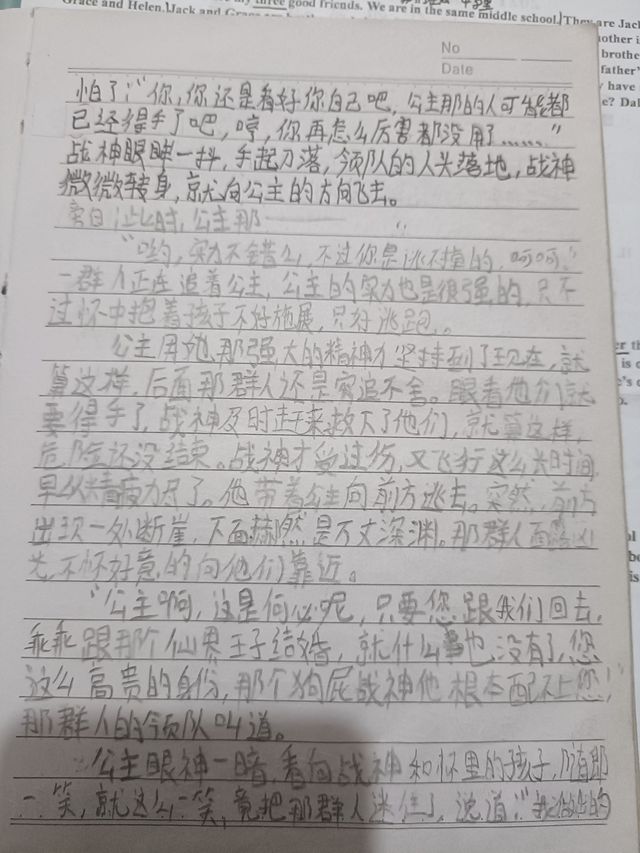 Grace and Helen. Jack and Grace are good friends. We are in the same middle school. They are Jack
No
Date
怕了:“你,你还是看好你自己吧,公主那的人可能都
已经得手了吧,哼,你再怎么厉害都没用了……”
战神眼眸一抖,手起刀落,领队的人头落地,战神
微微转身,就向公主的方向飞去。
此时,公主那——
“哟,实力不错么,不过你是逃不掉的,呵呵。”
一群人正在追着公主,公主的实力也是很强的,只不
过怀中抱着孩子不好施展,只好逃跑。
公主用她那强大的精神力坚持到了现在,就
算这样,后面那群人还是穷追不舍。眼看他们就
要得手了,战神及时赶来救下了他们,就算这样,
危险还没结束。战神才受过伤,又飞行这么长时间,
早以精疲力尽了。他带着公主向前方逃去。突然,前方
出现一处断崖,下面赫然是万丈深渊。那群人面露凶
光,不怀好意的向他们靠近。
“公主啊,这是何必呢,只要您跟我们回去,
乖乖跟那个仙界王子结婚,就什么也没有了,您
这么高贵的身份,那个狗屁战神他根本配不上您!”
那群人的领队叫道。
公主眼神一暗,看向战神和怀里的孩子,随即
一笑,就这么一笑,竟把那群人迷住了,说道:“我做出的